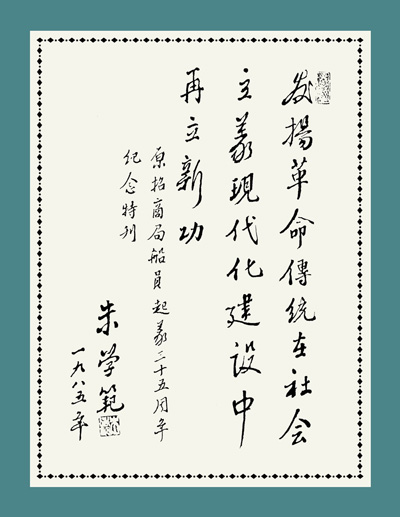 发揚革命傳統在社会
主義現代化建設中
再立新功
原招商局船員起義三十五周年
紀念特刊
朱学範
一九八五年